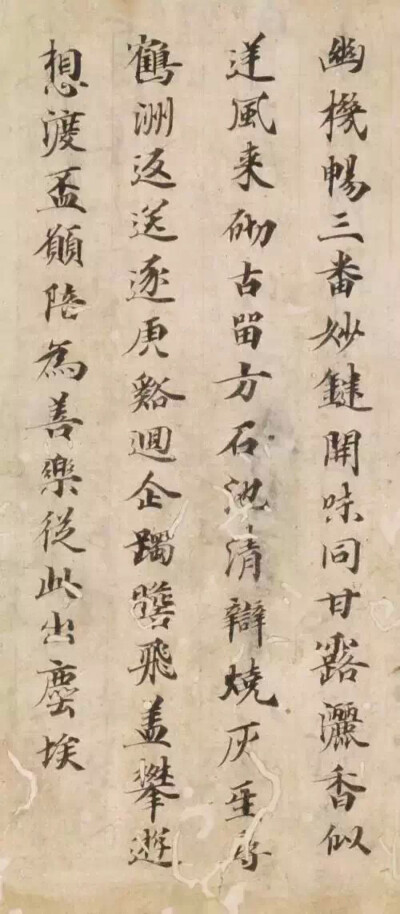 幽機暢三番妙鍵開味同甘露灑香似
逆風来砌古留方石池清辯燒灰聖尋
鶴洲返送逐虎谿迴企躅瞻飛盖攀遊
想渡盃願陪為善樂從此出塵埃